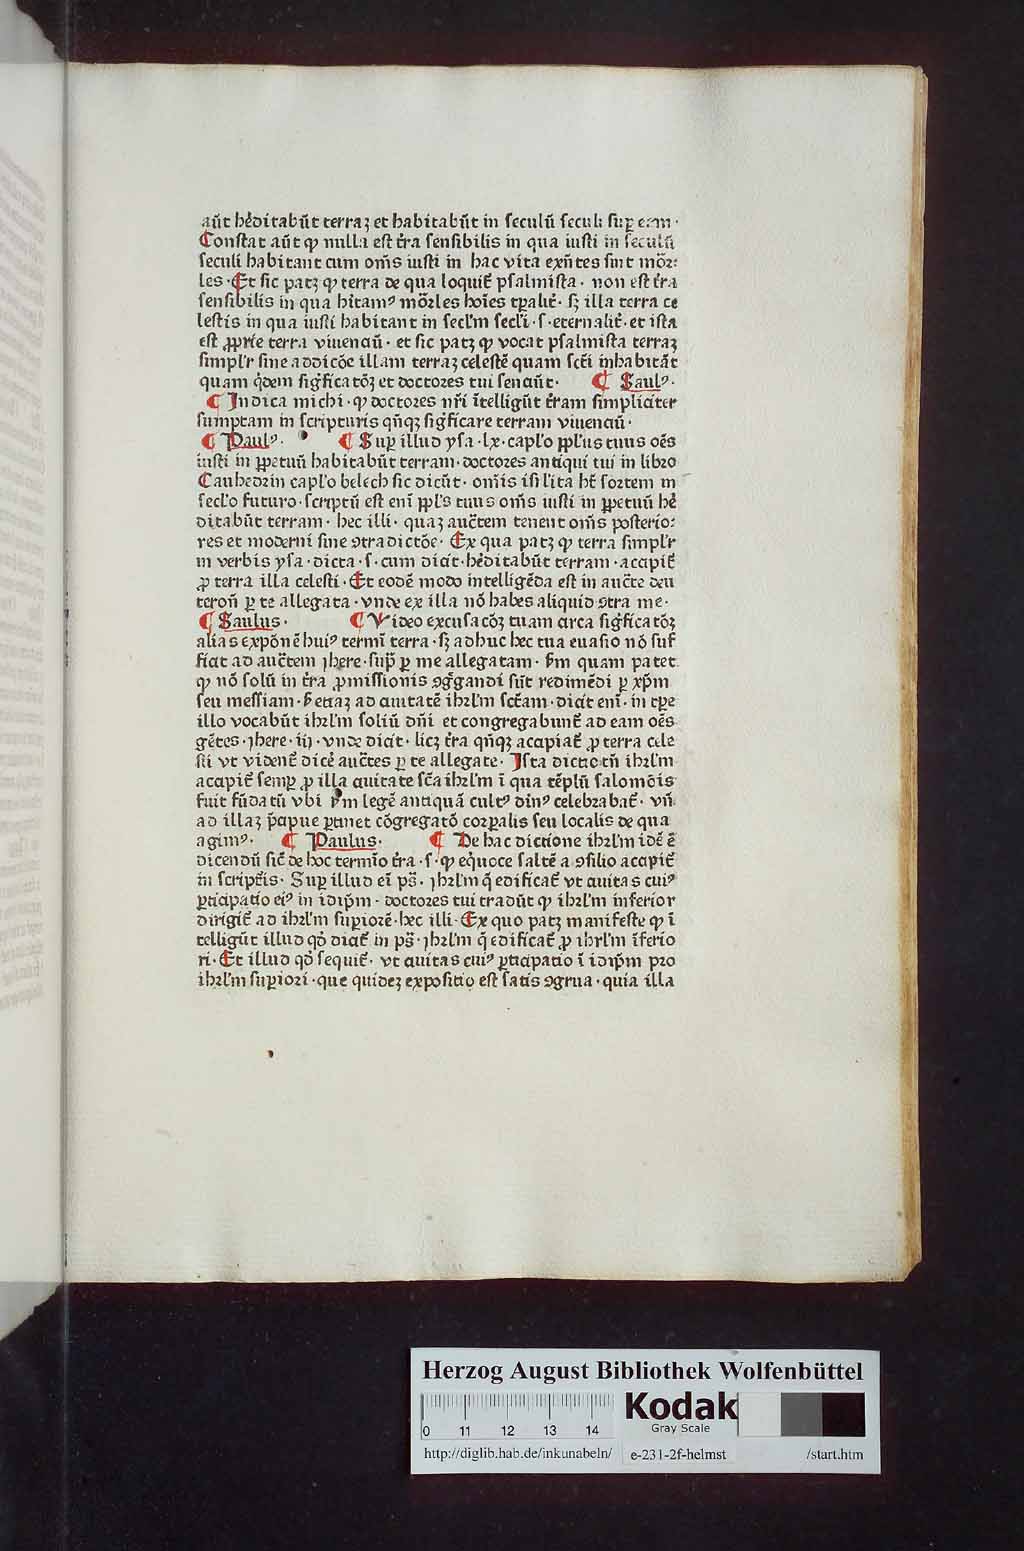 aūt hēditabūt terraꝫ et habitabūt in seculū seculi suꝑ eam·
Constat aūt ꝙ nulla est t̄ra sensibilis in qua iusti in seculū
seculi habitant cum om̄s iusti in hac vita exn̄tes sint mōr:
les·Et sic patꝫ ꝙ terra de qua loquit᷑ psalmista·non est t̄ra
sensibilis in qua hītamꝰ mōrles hoīes tꝑalit᷑·sꝫ illa terra ce
lestis in qua iusti habitant in secl'm secl'i·s·eternalit᷑·et ista
est ꝓprīe terra viuenciū·et sic patꝫ ꝙ vocat psalmista terraꝫ
simpl'r sine addicōe illam terraꝫ celestē quam sc̄ti inhabitāt
quam q̄dem sig̃ficatōꝫ et doctores tui senciūt· ¶ Saulꝰ·
¶ Indica michi·ꝙ doctores nr̄i ītelligūt t̄ram simpliciter
sumptam in scripturis qn̄qꝫ sig̃ficare terram viuenciū·
¶ Paulꝰ· ¶ Suꝑ illud ysa·lx·capl'o ppl'us tuus oēs
iusti in ꝑpetuū habitabūt terram·doctores antiqui tui in libro
Cauhedrin capl'o belech sic dicūt·om̄is isil'ita ht̄ sortem in
secl'o futuro·scriptū est enī ppl's tuus om̄s iusti in ꝑpetuū hē
ditabūt terram·hec illi·quaꝫ auc̄tem tenent om̄s posterio:
res et moderni sine ꝯtradictōe·Ex qua patꝫ ꝙ terra simpl'r
in verbis ysa·dicta·s·cum dicit·hēditabūt terram·accipit᷑
ꝓ terra illa celesti·Et eodē modo intelligēda est in auc̄te deu
teron̄ ꝑ te allegata·vnde ex illa nō habes aliquid ꝯtra me·
¶ Saulus· ¶ Video excusacōꝫ tuam circa sig̃ficatōꝫ
alias expōnē huiꝰ termī terra·sꝫ adhuc hec tua euasio nō suf
ficit ad auc̄tem jhere·sup̄ ꝑ me allegatam·ẜm quam patet
ꝙ nō solū in t̄ra ꝓmissionis ꝯg̃gandi sūt redimēdi ꝑ xp̄m
seu messiam·ẜ etiaꝫ ad ciuitatē ihrl'm sc̄tam·dicit enī·in tꝑe
illo vocabūt ihrl'm soliū dn̄i et congregabunt᷑ ad eam oēs
gētes·jhere·iij·vnde dicit·licꝫ t̄ra qn̄qꝫ accipiat᷑ ꝓ terra cele
sti vt vident᷑ dicē auc̄tes ꝑ te allegate·Ista dictio tn̄ ihrl'm
accipit᷑ semꝑ ꝓ illa ciuitate sc̄a ihrl'm ī qua tēplū salomōis
fuit fūdatū vbi ẜm legē antiquā cultꝰ dinꝰ celebrabat᷑·vn̄
ad illaꝫ p̄cipue ꝑtinet cōgregatō corꝑalis seu localis de qua
agimꝰ· ¶ Paulus· ¶ De hac dictione ihrl'm idē ē
dicendū sic̄ de hoc termīo t̄ra·s·ꝙ eq̇uoce saltē a ꝯsilio accipit᷑
in script̄is·Suꝑ illud eī ps̄·jhrl'm q̄ edificat᷑ vt ciuitas cuiꝰ
ꝑticipatio eiꝰ in idip̄m·doctores tui tradūt ꝙ ihrl'm inferior
dirigit᷑ ad ihrl'm suꝑiorē·hec illi·Ex quo patꝫ manifeste ꝙ ī
telligūt illud qd̄ dicit᷑ in ps̄·jhrl'm q̄ edificat᷑ ꝓ ihrl'm īferio
ri·Et illud qd̄ sequit᷑·vt ciuitas cuiꝰ ꝑticipatio ī idip̄m pro
ihrl'm suꝑiori·que quideꝫ expositio est satis ꝯgrua·quia illa
Herzog August Bibliothek Wolfenbüttel
0 11 12 13 14
Kodak
Gray Scale
http://diglib.hab.de/inkunabeln/ e-231-2f-helmst /start.htm